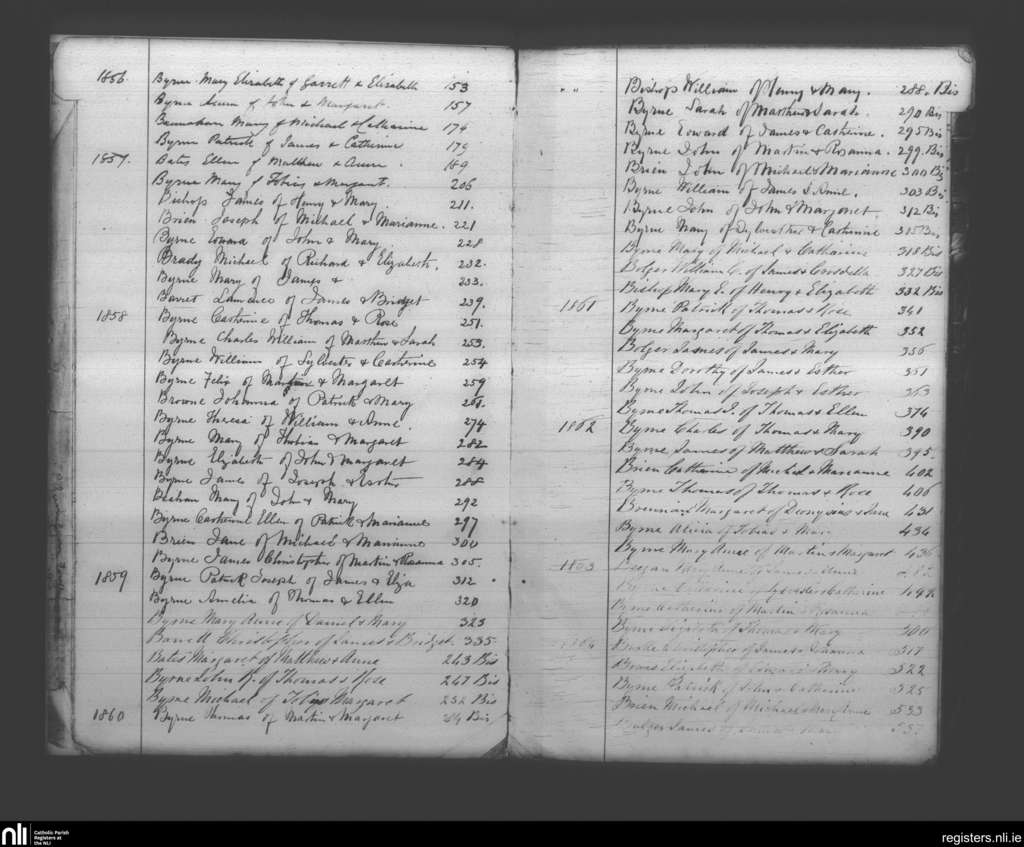 1856 Byrne Mary Elizabeth of Garrett & Elizabeth 153
Byrne Anne of John & Margaret. 157
Mary of Michael & Catharine 174
Byrne Patrick of James & Catherine 179
1857. Bates Ellen of Matthew & Anne. 189
Byrne Mary of Tobias & Margaret. 206
Bishop James of Henry & Mary. 211.
Brien Joseph of Michael & Marianne. 221
Byrne Edward of John & Mary 228
Brady Michael of Richard & Elizabeth. 232.
Byrne Mary of James & 233.
Barret Lawrence of James & Bridget 239.
1858 Byrne Catherine of Thomas & Rose 251.
Byrne Charles William of Matthew & Sarah 253.
Byrne William of Sylvester & Catherine 254
Byrne Felix of Martin & Margaret 259
Browne Johanna of Patrick & Mary 261.
Byrne Theresa of William & Anne. 274
Byrne Mary of Tobias & Margaret 282
Byrne Elizabeth of John & Margaret 284
Byrne James of Joseph & Esther 288
Mary of John & Mary 292
Byrne Catherine Ellen of Patrick & Marianne 297
Brien Jane of Michael & Marianne 300
Byrne James Christopher of Martin & Rosanna 305.
1859 Byrne Patrick Joseph of James & Eliza 312
Byrne Amelia of Thomas & Ellen 320
Byrne Mary Anne of Daniel & Mary 323
Barrett Christopher of James & Bridget 335.
Bates Margaret of Matthew & Anne 243 Bis
Byrne John R. of Thomas & Rose 247 Bis
Byrne Michael of Tobias Margaret 252 Bis
1860 Byrne Thomas of Martin & Margaret Bis
" " Bishop William of Henry & Mary. 288. Bis
Byrne Sarah of Matthew & Sarah. 290 Bis
Byrne Edward of James & Catherine. 295 Bis
Byrne John of Martin & Rosanna. 299. Bis
Brien John of Michael & Marianne 300 Bis
Byrne William of James & Anne. 303 Bis
Byrne John of John & Margaret 312 Bis
Byrne Mary of Sylvester & Catherine 315 Bis
Byrne Mary of Michael & Catharine 318 Bis
Bolger William C. of James & 327 Bis
Bishop Mary E. of Henry & Elizabeth 332 Bis
1861 Byrne Patrick of Thomas & Rose 341
Byrne Margaret of Thomas & Elizabeth 352
Bolger James of James & Mary 356
Byrne Dorothy of James & Esther 361
Byrne John of Joseph & Esther 363
Byrne Thomas J. of Thomas & Ellen 374
1862 Byrne Charles of Thomas & Mary 390
Byrne James of Matthew & Sarah 395.
Brien Catherine of Michael & Marianne 402
Byrne Thomas of Thomas & Rose 406
Brennan Margaret of Dionysius & Jane 431
Byrne Alicia of Tobias & Mary 434
Byrne Mary Anne of Martin & Margaret 436
1863 Mary Anne of James & Anne
Byrne Catherine of Sylvester & Catherine 492
Byrne Catherine of Martin & Rosanna
Byrne of Thomas & Mary 500
1864 Burke Christopher of James & Johanna 517
Elizabeth of & Mary 522
Byrne Patrick of John & Catherine 525
Brien Michael of Michael & Marianne 533
Bolger James of
nli Catholic Parish Registers at the NLI
registers.nli.ie